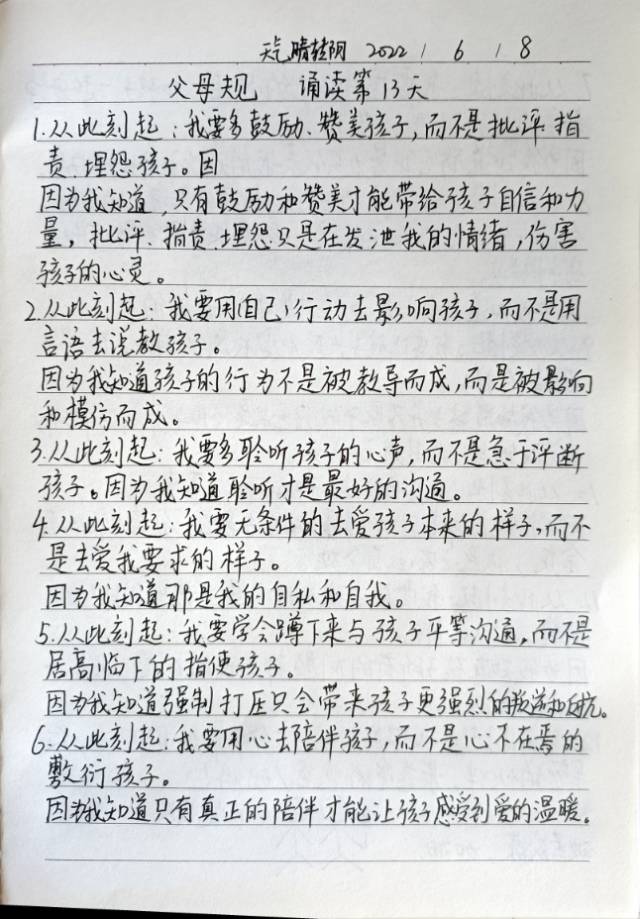 天气晴转阴 2022 / 6 / 8
父母规 诵读第13天
1.从此刻起:我要多鼓励、赞美孩子,而不是批评、指
责、埋怨孩子。因
因为我知道,只有鼓励和赞美才能带给孩子自信和力
量,批评、指责、埋怨只是在发泄我的情绪,伤害
孩子的心灵。
2.从此刻起:我要用自己行动去影响孩子,而不是用
言语去说教孩子。
因为我知道孩子的行为不是被教导而成,而是被影响
和模仿而成。
3.从此刻起:我要多聆听孩子的心声,而不是急于评断
孩子。因为我知道聆听才是最好的沟通。
4.从此刻起:我要无条件的去爱孩子本来的样子,而不
是去爱我要求的样子。
因为我知道那是我的自私和自我。
5.从此刻起:我要学会蹲下来与孩子平等沟通,而不是
居高临下的指使孩子。
因为我知道强制打压只会带来孩子更强烈的叛逆和反抗。
6.从此刻起:我要用心去陪伴孩子,而不是心不在焉的
敷衍孩子。
因为我知道只有真正的陪伴才能让孩子感受到爱的温暖。